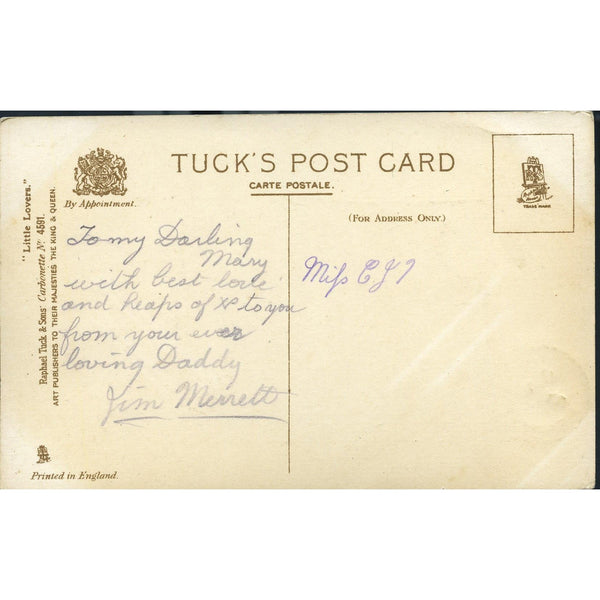 TUCK'S POST CARD
CARTE POSTALE.
By Appointment.
(FOR ADDRESS ONLY.)
TRADE MARK
"Little Lovers."
Raphael Tuck & Sons' Carbonette No. 4591.
ART PUBLISHERS TO THEIR MAJESTIES THE KING & QUEEN.
To my Darling
Mary
with best love
and heaps of to you
from your ever
loving Daddy
Jim Merrett
Miss
Printed in England.